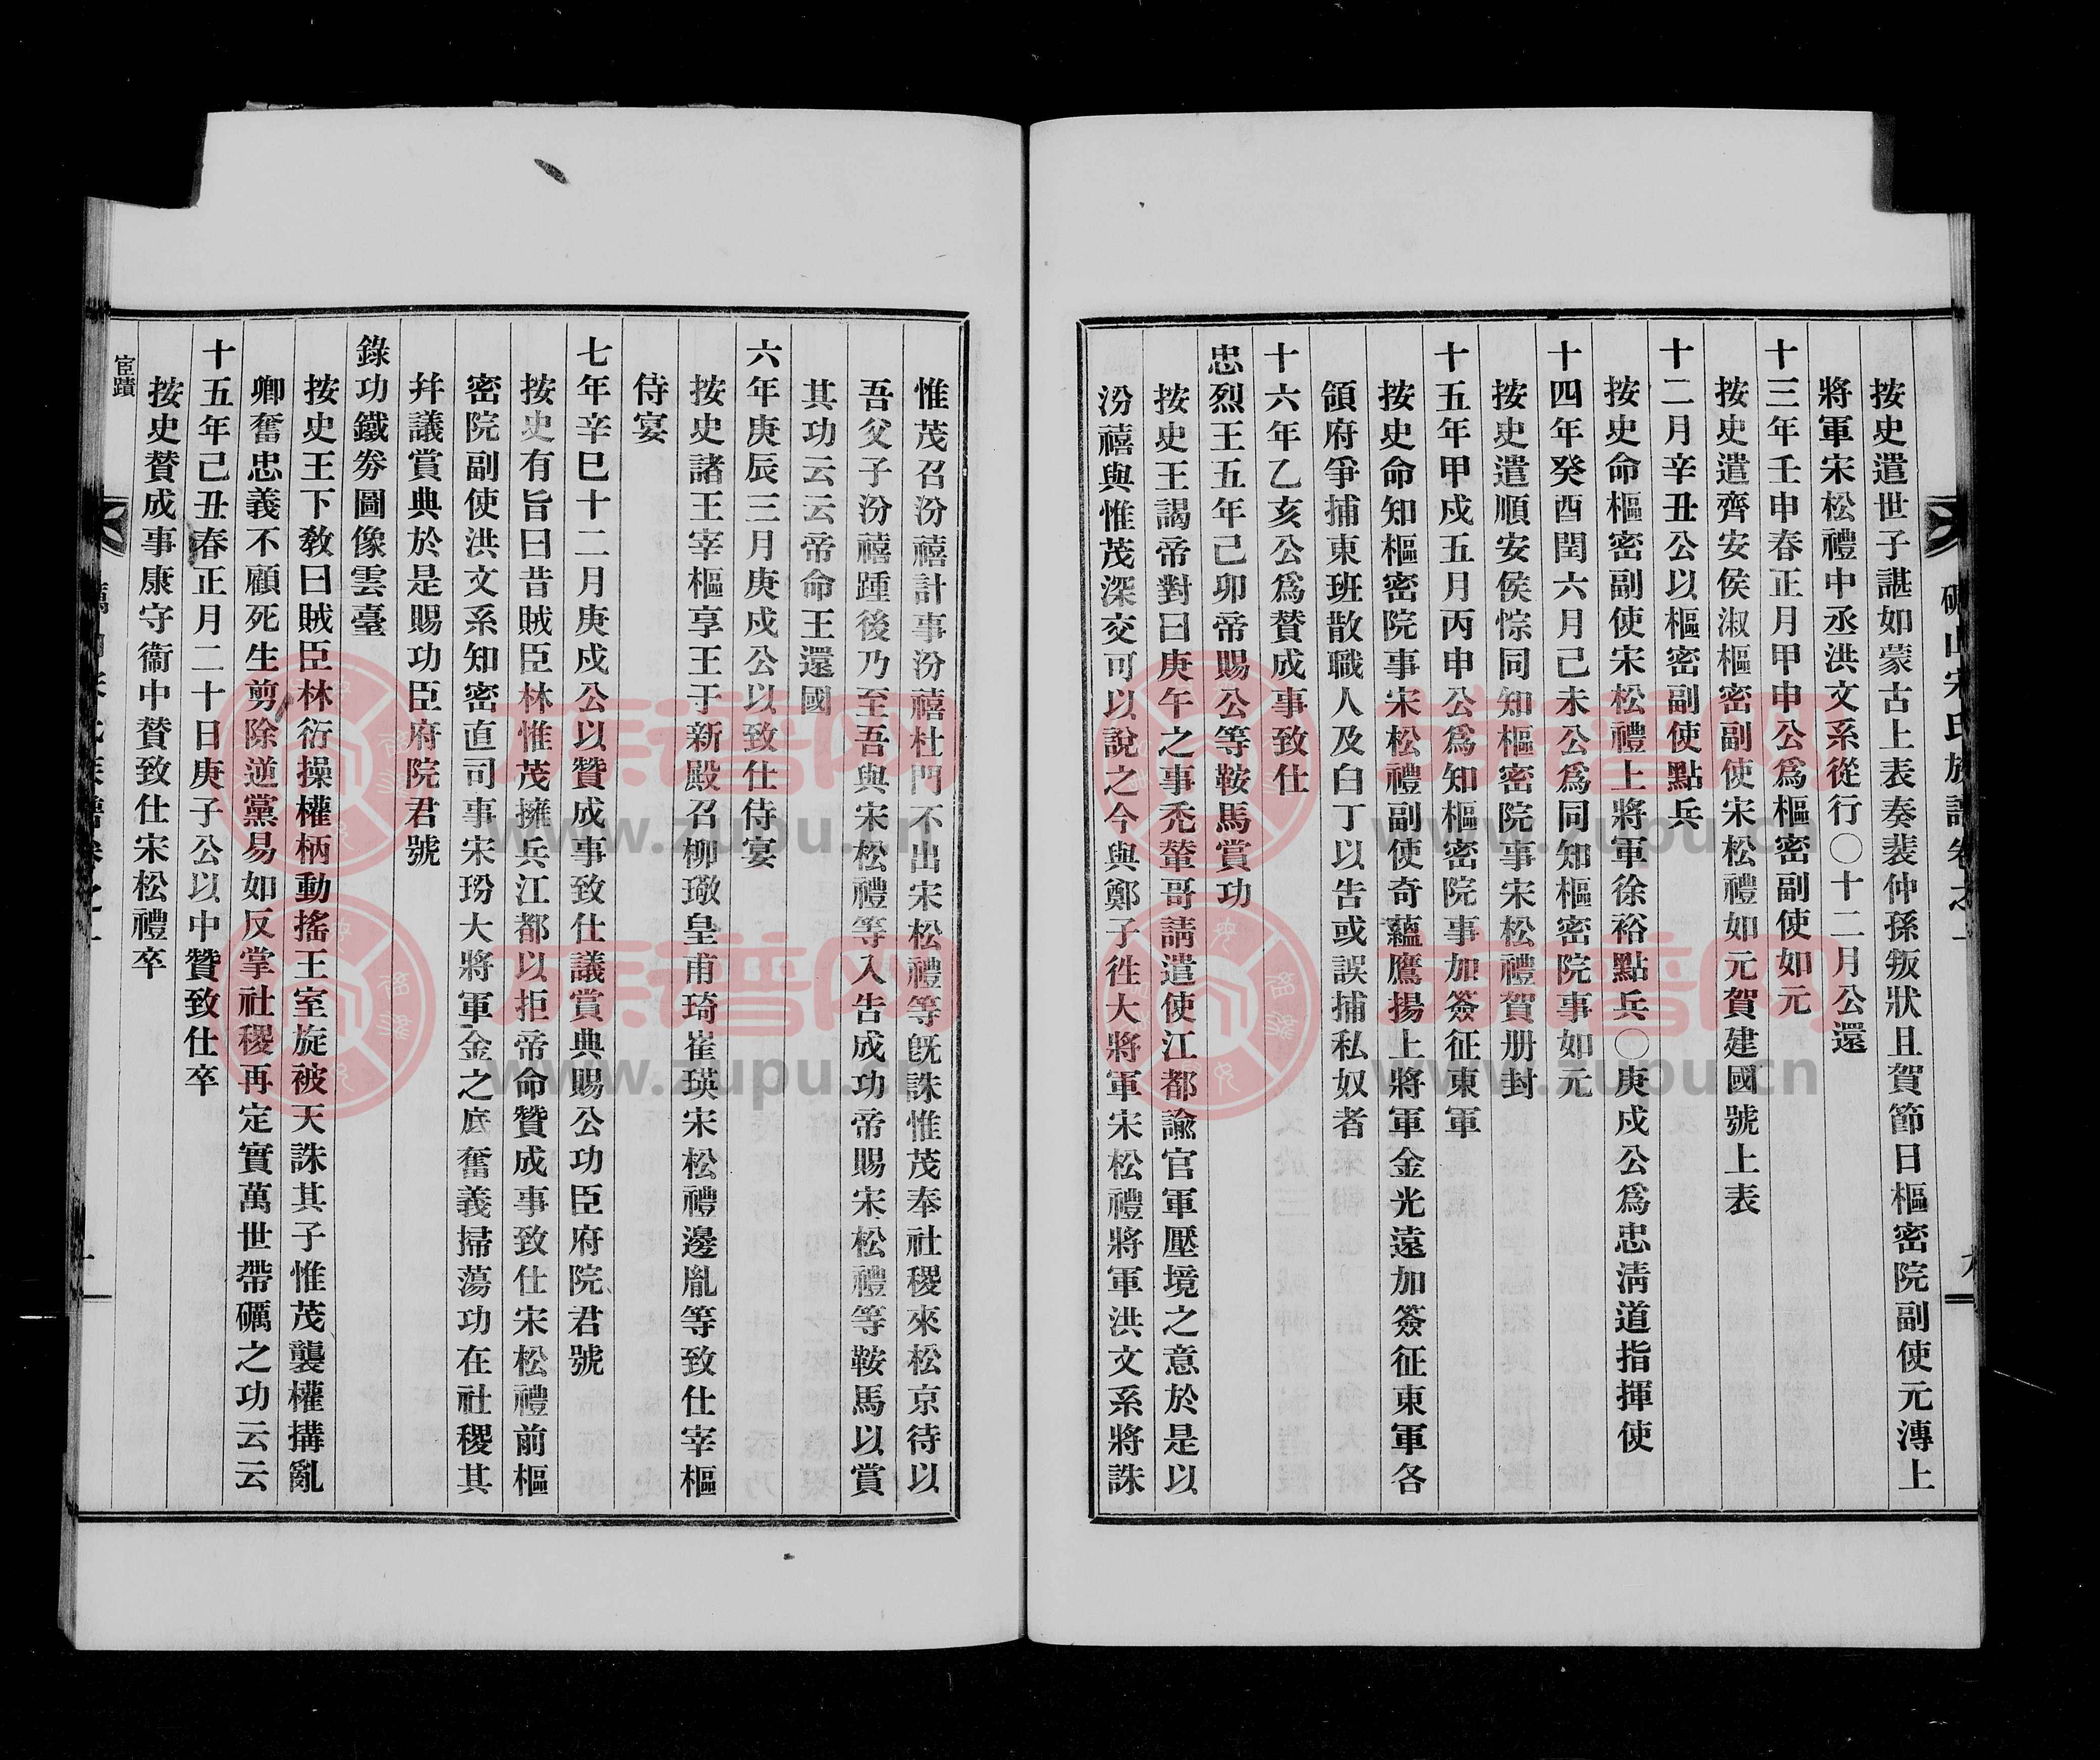 按史遣世子諶如蒙古上表奏裴仲孫叛狀且賀節日樞密院副使元溥上
將軍宋松禮中丞洪文系從行〇十二月公還
十三年壬申春正月甲申公爲樞密副使如元
按史遣齊安侯淑樞密副使宋松禮如元賀建國號上表
十二月辛丑公以樞密副使點兵
按史命樞密副使宋松禮上將軍徐裕點兵〇庚戍公爲忠淸道指揮使
十四年癸酉閏六月己未公爲同知樞密院事如元
按史遣順安侯悰同知樞密院事宋松禮賀册封
十五年甲戍五月丙申公爲知樞密院事加簽征東軍
按史命知樞密院事宋松禮副使奇蘊鷹揚上將軍金光遠加簽征東軍各
領府爭捕東班散職人及白丁以吿或誤捕私奴者
十六年乙亥公爲賛成事致仕
忠烈王五年己卯帝賜公等鞍馬賞功
按史王謁帝對曰庚午之事禿輦哥請遣使江都諭官軍壓境之意於是以
汾禧與惟茂深交可以說之今與鄭子徃大將軍宋松禮將軍洪文系將誅
礪山宋氏族譜卷之一
惟茂召汾禧計事汾禧杜門不出宋松禮等旣誅惟茂奉社稷來松京待以
吾父子汾禧踵後乃至吾與宋松禮等入吿成功帝賜宋松禮等鞍馬以賞
其功云云帝命王還國
六年庚辰三月庚戍公以致仕侍宴
按史諸王宰樞享王于新殿召柳璥皇甫琦崔瑛宋松禮邊胤等致仕宰樞
侍宴
七年辛巳十二月庚戍公以贊成事致仕議賞典賜公功臣府院君號
按史有旨曰昔賊臣林惟茂擁兵江都以拒帝命贊成事致仕宋松禮前樞
密院副使洪文系知密直司事宋玢大將軍金之底奮義掃蕩功在社稷其
幷議賞典於是賜功臣府院君號
錄功鐵券圖像雲臺
按史王下敎曰賊臣林衍操權柄動搖王室旋被天誅其子惟茂襲權搆亂
卿奮忠義不顧死生剪除逆黨易如反掌社稷再定實萬世帶礪之功云云
十五年己丑春正月二十日庚子公以中贊致仕卒
按史賛成事康守衞中賛致仕宋松禮卒
宦蹟
族谱网
www.zupu.cn
族谱网
www.zupu.cn
族谱网
www.zupu.cn
族谱网
www.zupu.cn